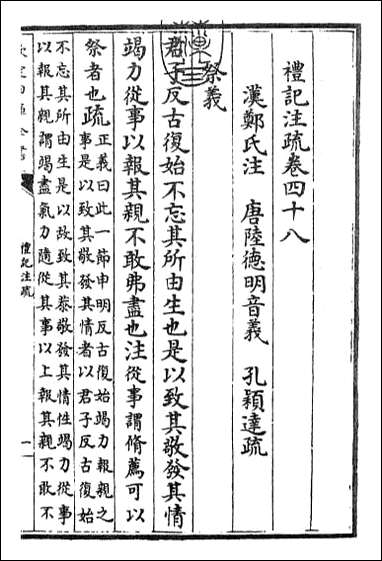 禮記注疏卷四十八
漢鄭氏注 唐陸德明音義 孔穎達疏
祭義
君子反古復始不忘其所由生也是以致其敬發其情
竭力從事以報其親不敢弗盡也注從事謂脩薦可以
祭者也疏正義曰此一節申明反古復始竭力報親之
事是以致其敬發其情者以君子反古復始
不忘其所由生是以故致其恭敬發其情性竭力從事
以報其親謂竭盡氣力隨從其事以上報其親不敢不
欽定四庫全書
禮記注疏
一